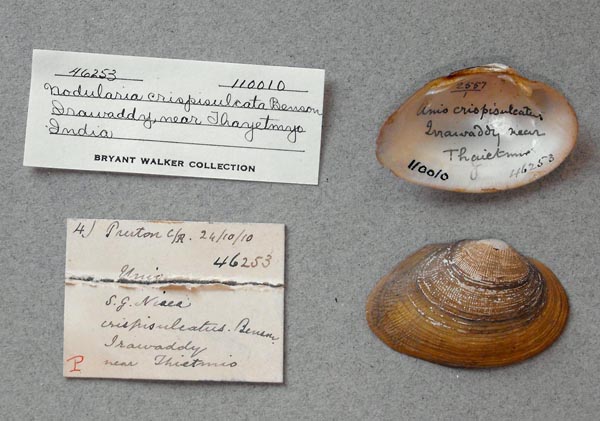 46253 110010
Nodularia crispisulcata Benson
Irawaddy, near Thayetmyo
India
BRYANT WALKER COLLECTION
2557
Unio crispisulcatus
Irrawaddy near
Thyietmio
110010 46253
4) Preston C/R. 24/10/10
46253
Unio
S.G. Nisea
crispisulcatus. Benson
Irawaddy
near Thietmio
P